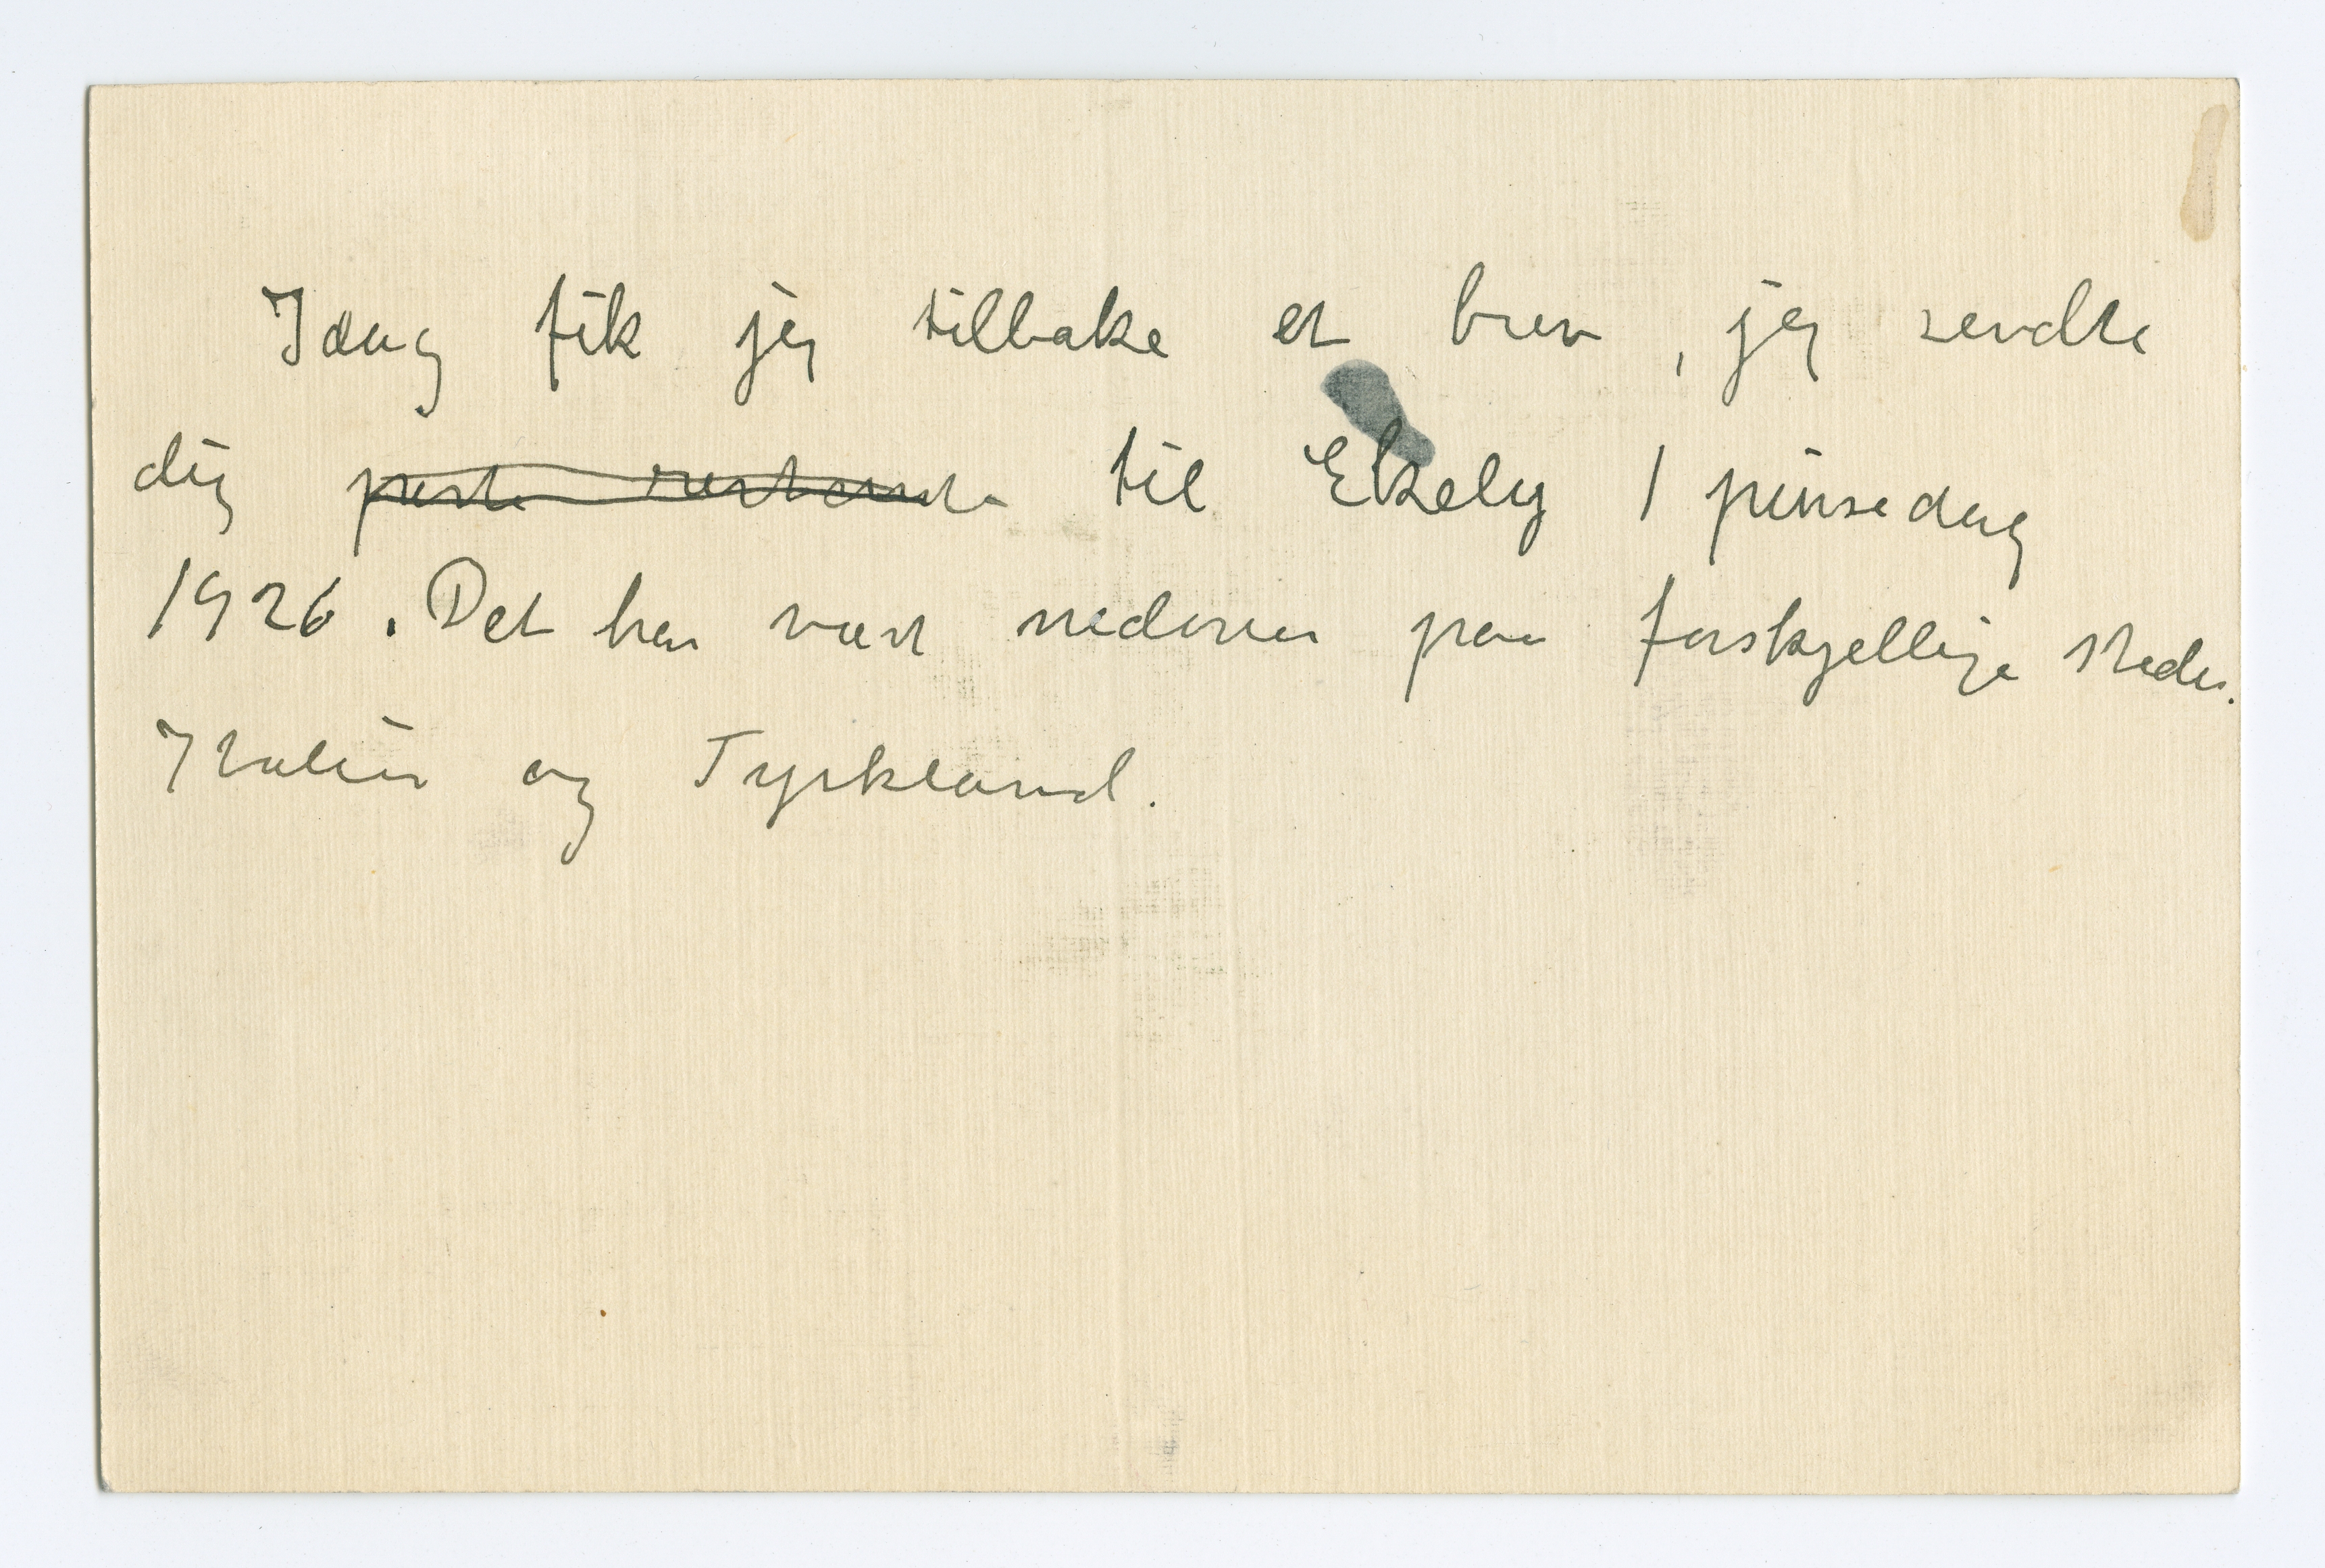 Idag fik jeg tilbake et brev, jeg sendte
dig poste restante til Ekely 1 pinsedag
1926. Det har vært nedover paa forskjellige steder.
Italien og Tyrkland.